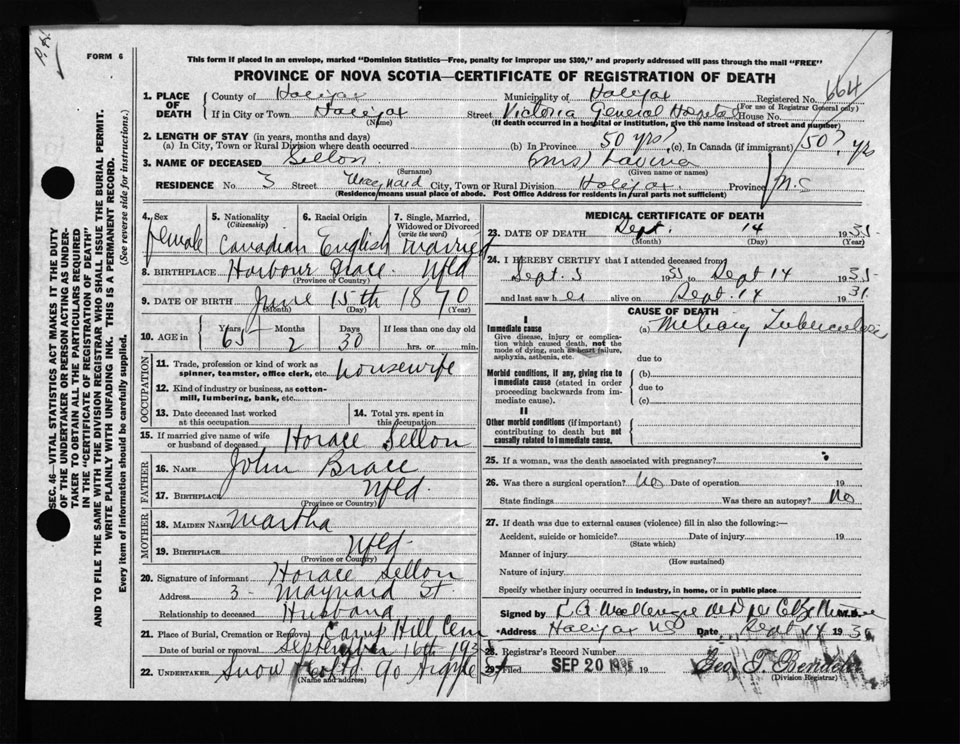 P. H.
FORM 6
This form if placed in an envelope, marked "Dominion Statistics—Free, penalty for improper use $300," and properly addressed will pass through the mail "FREE"
PROVINCE OF NOVA SCOTIA—CERTIFICATE OF REGISTRATION OF DEATH
1. PLACE OF DEATH County of Halifax Municipality of Halifax Registered No. 664
(For use of Registrar General only)
If in City or Town Halifax Street Victoria General Hospital House No.
(Name) (If death occurred in a hospital or institution, give the name instead of street and number)
2. LENGTH OF STAY (in years, months and days)
(a) In City, Town or Rural Division where death occurred (b) In Province 50 yrs? (c) In Canada (if immigrant) 50? yrs
3. NAME OF DECEASED Sellon (Mrs) Lavina
(Surname) (Given name or names)
RESIDENCE No. 3 Street Maynard City, Town or Rural Division Halifax Province N.S
(Residence means usual place of abode. Post Office Address for residents in rural parts not sufficient)
4. Sex female
5. Nationality (Citizenship) Canadian
6. Racial Origin English
7. Single, Married, Widowed or Divorced (write the word) Married
8. BIRTHPLACE Harbour Grace Nfld
(Province or Country)
9. DATE OF BIRTH June 15th 1870
(Month) (Day) (Year)
10. AGE in Years 65 Months 2 Days 30 If less than one day old hrs. or min.
OCCUPATION
11. Trade, profession or kind of work as spinner, teamster, office clerk, etc. Housewife
12. Kind of industry or business, as cotton-mill, lumbering, bank, etc.
13. Date deceased last worked at this occupation
14. Total yrs. spent in this occupation
15. If married give name of wife or husband of deceased Horace Sellon
FATHER
16. NAME John Brace
17. BIRTHPLACE Nfld.
(Province or Country)
MOTHER
18. MAIDEN NAME Martha
19. BIRTHPLACE Nfld.
(Province or Country)
20. Signature of informant Horace Sellon
Address 3 Maynard St.
Relationship to deceased Husband
21. Place of Burial, Cremation or Removal Camp Hill Cem
Date of burial or removal September 16th 1935
22. UNDERTAKER Snow & Co Ltd 90 Argyle St
(Name and address)
MEDICAL CERTIFICATE OF DEATH
23. DATE OF DEATH Sept. 14 1935
(Month) (Day) (Year)
24. I HEREBY CERTIFY that I attended deceased from
Sept. 5 1935 to Sept 14 1935
and last saw her alive on Sept. 14 19
CAUSE OF DEATH
I
Immediate cause
Give disease, injury or complication which caused death, not the mode of dying, such as heart failure, asphyxia, asthenia, etc.
(a) Miliary Tuberculosis
due to
Morbid conditions, if any, giving rise to immediate cause (stated in order proceeding backwards from immediate cause).
(b)
due to
(c)
II
Other morbid conditions (if important) contributing to death but not causally related to immediate cause.
25. If a woman, was the death associated with pregnancy?
26. Was there a surgical operation? No Date of operation 19
State findings Was there an autopsy? No
27. If death was due to external causes (violence) fill in also the following:—
Accident, suicide or homicide? Date of injury 19
(State which)
Manner of injury
(How sustained)
Nature of injury
Specify whether injury occurred in industry, in home, or in public place
Signed by MacKenzie
Address Halifax NS Date Sept 14 193
28. Registrar's Record Number
29. Filed SEP 20 1935 19 Geo. T. Bender
(Division Registrar)
SEC. 46—VITAL STATISTICS ACT MAKES IT THE DUTY OF THE UNDERTAKER OR PERSON ACTING AS UNDERTAKER TO OBTAIN ALL THE PARTICULARS REQUIRED IN THE "CERTIFICATE OF REGISTRATION OF DEATH" AND TO FILE THE SAME WITH THE DIVISION REGISTRAR WHO SHALL ISSUE THE BURIAL PERMIT.
WRITE PLAINLY WITH UNFADING INK. THIS IS A PERMANENT RECORD.
Every item of information should be carefully supplied. (See reverse side for instructions.)